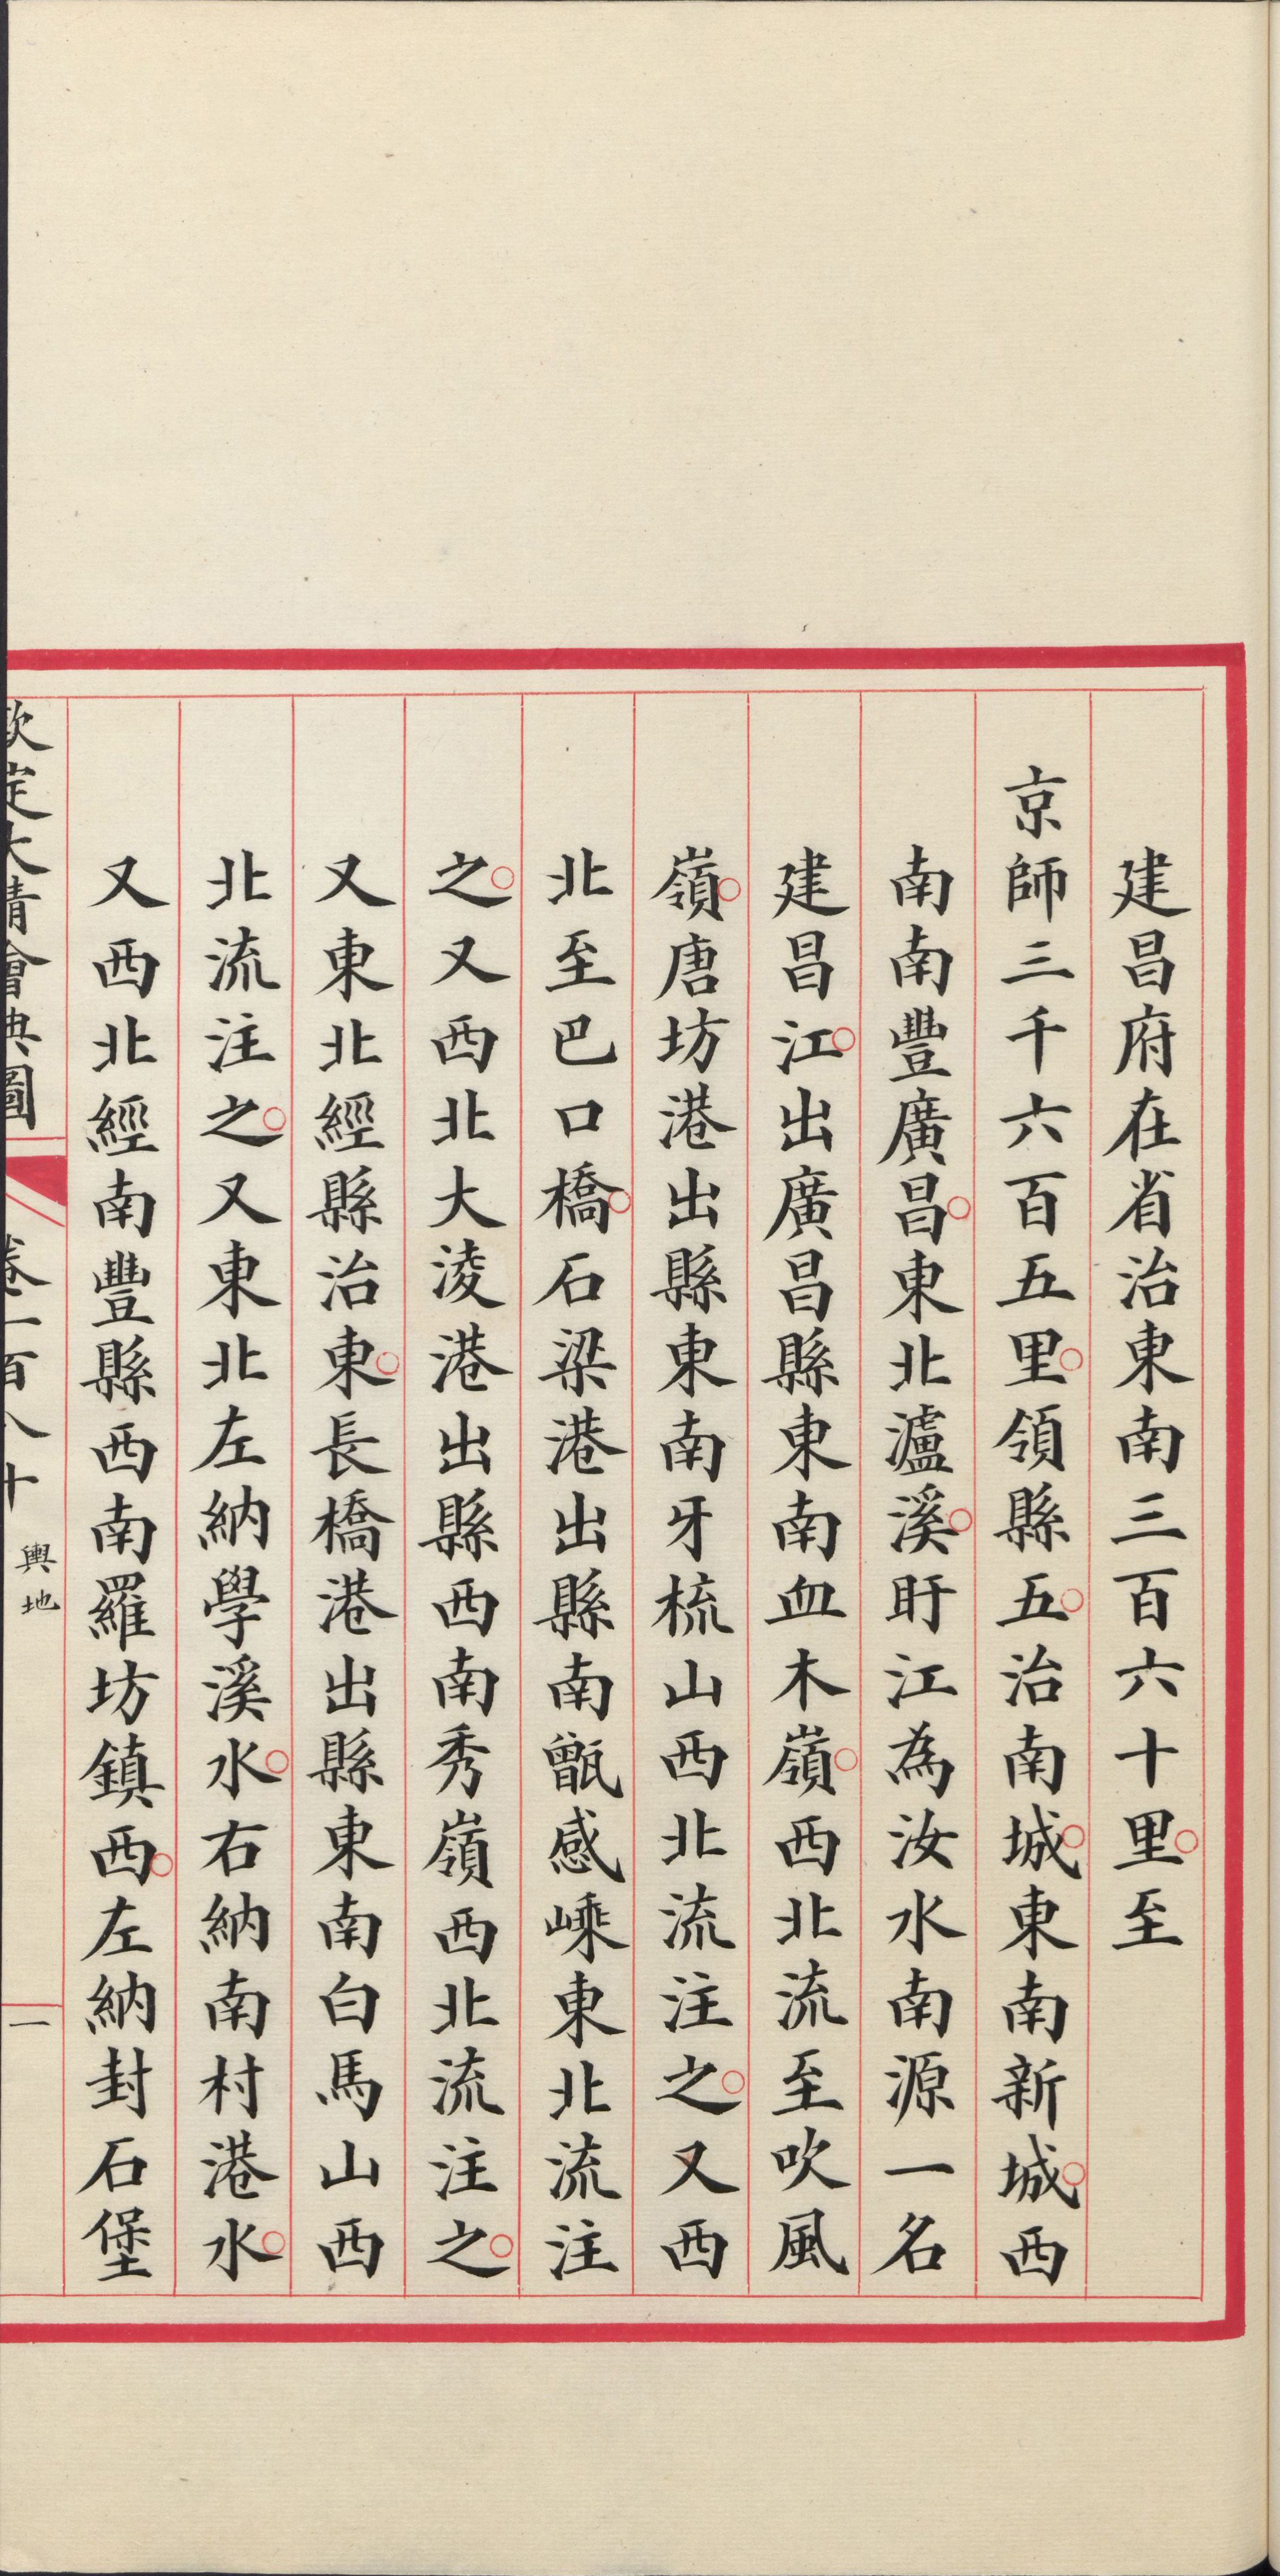 建昌府在省治東南三百六十里○至
京師三千六百五里○領縣五○治南城○東南新城○西
南南豐廣昌○東北瀘溪○盱江為汝水南源一名
建昌江○出廣昌縣東南血木嶺○西北流至吹風
嶺○唐坊港出縣東南牙梳山西北流注之○又西
北至巴口橋○石梁港出縣南甑感嵊東北流注
之○又西北大淩港出縣西南秀嶺西北流注之○
又東北經縣治東○長橋港出縣東南白馬山西
北流注之○又東北左納學溪水○右納南村港水○
又西北經南豐縣西南羅坊鎮西○左納封石堡
欽定大清會典圖 卷一百八十 輿地 一